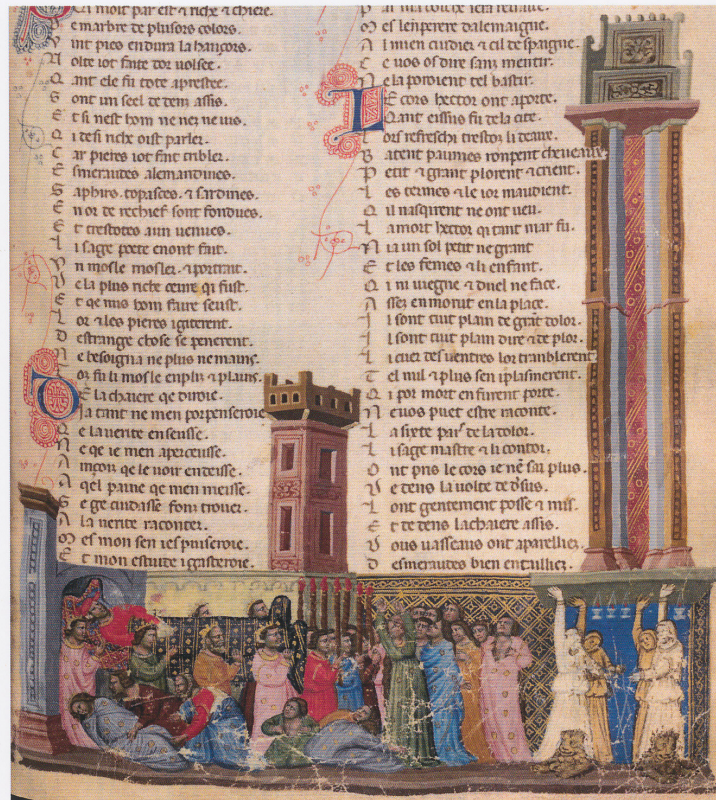 moit par est ⁊ riche ⁊ chiere.
De marbre de plusors colors.
pies endura la hauçors.
Molte iot faite doz volsee.
Qant ele fu tote aprestee.
Sont un seel de dem assis.
Et si nest hom ne nez ne uis.
Qi tesi riche oist parler.
Car pieres iot sint cubler.
Esmeraudes alemandines.
Saphirs. topasces. ⁊ sardines.
En or de rechief sont fondues.
Et trestotes aun uenues.
Li sage poete enont fait.
Vn mosle mosler. ⁊ portrait.
De la plus riche oeure qi fust.
Et qe nus hom faire seust.
Lor ⁊ les pieres igiterent.
Destrange chose se penerent.
Ne besoigna ne plus ne mains.
Toz fu li mosle enpliz ⁊ plains.
De la chaiere qe diroie.
Ja tant ne men porpenseroie
Qe la uerite enseusse.
Ne qe ie men aperceusse.
A qel paine qe men meisse.
Se ge cudasse fom trouer.
A la uerite raconter.
Mes mon sen ies puiseroie.
Et mon estuite igasteroie.
Mes lenperere dalemaigne.
Al mien cudier ⁊ cil de spaigne.
Ce uos os dire sanz mentir.
Ne la poroient tel bastir.
Le cors hector ont aporte.
Qant eissus fu de la cite.
Lors refreschi trestoz li deaus.
Batent paumes ronpent cheueaus.
Petit ⁊ grant plorent ⁊ crient.
Les termes ⁊ le ior maudient.
Qil nasqirent ne ont ueu.
La mort hector qi tant mar fu.
Nia un sol petit ne grant
Et les femes ⁊ li enfant.
Qi ni uiegne ⁊ duel ne face.
Assez en morut en la place.
Il sont tuit plain de grant dolor.
Il sont tuit plain dire ⁊ de plor.
Li cuer des uentres lor tranblerent
Tel mil ⁊ plus sen iplasmerent.
Qi por mort en furent porte.
Ne uos puet estre raconte.
La sixte part de la dolor.
Li sage mastre ⁊ li contor.
Ont pris le cors ie ne sai plus.
Dedens la uolte de desus.
Lont gentement posse ⁊ mis.
Et dedens la chaiere assis.
Dous uasseaus ont apareilliez.
Desmeraudes bien entailliez.